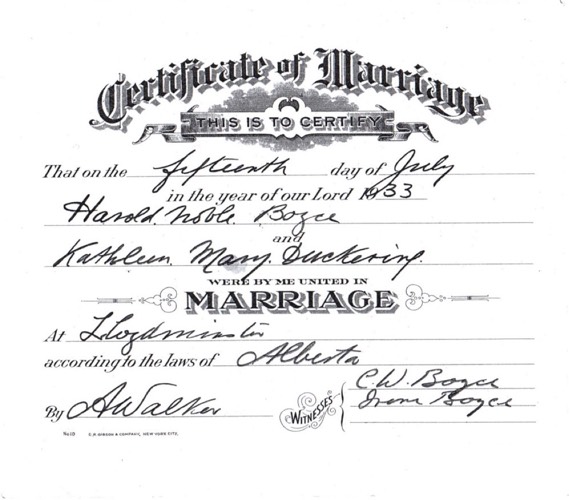 Certificate of Marriage
THIS IS TO CERTIFY
That on the fifteenth day of July
in the year of our Lord 1933
Harold Noble Boyce
and
Kathleen Mary Duckering.
WERE BY ME UNITED IN
MARRIAGE
At Lloydminster
according to the laws of Alberta
By A Walker
WITNESSES
C. W. Boyce
Irene Boyce
No 10 C.R. GIBSON & COMPANY, NEW YORK CITY.